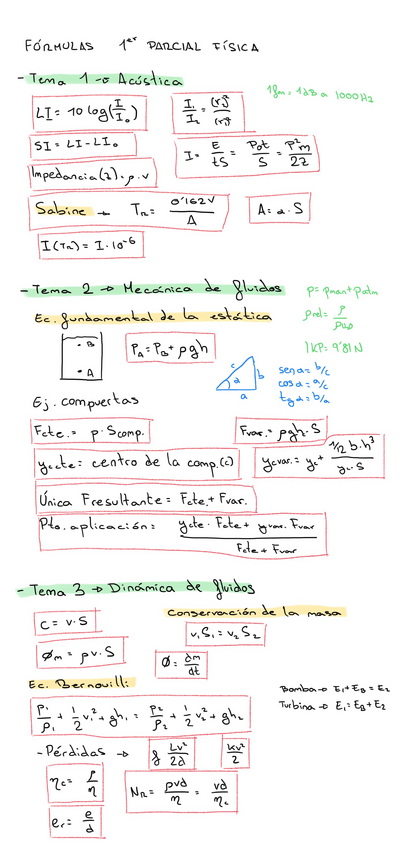 FÓRMULAS 1er PARCIAL FÍSICA
- Tema 1 → Acústica
1fon = 1dB a 1000Hz
LI = 10 log(I/I₀)
I₁/I₂ = (r₂)²/(r₁)²
SI = LI - LI₀
I = E/tS = Pot/S = P²m/2Z
Impedancia(z) = ρ.v
Sabine → TR = 0'162V/A
A = α.S
I(TR) = I.10⁻⁶
- Tema 2 → Mecánica de fluidos
P = Pman + Patm
ρrel = ρ/ρH₂O
1KP = 9'81N
Ec. fundamental de la estática
.B
.A
PA = PB + ρgh
c
b
α
a
sen α = b/c
cos α = a/c
tg α = b/a
Ej. compuertas
Fcte. = P.Scomp.
Fvar. = ρgh₂.S
ycte = centro de la comp.(c)
yvar. = yc + 1/12 b.h³/yc.S
Única Fresultante = Fcte. + Fvar.
Pto. aplicación = ycte.Fcte + yvar.Fvar/Fcte + Fvar
- Tema 3 → Dinámica de fluidos
Conservación de la masa
C = v.S
v₁S₁ = v₂S₂
Øm = ρv.S
Ø = dm/dt
Ec. Bernouilli
Bomba → E₁ + EB = E₂
Turbina → E₁ = EB + E₂
P₁/ρ₁ + 1/2 v₁² + gh₁ = P₂/ρ₂ + 1/2 v₂² + gh₂
- Pérdidas → f Lv²/2d Kv²/2
ηc = ρ/η
NR = ρvd/η = vd/ηc
er = e/d